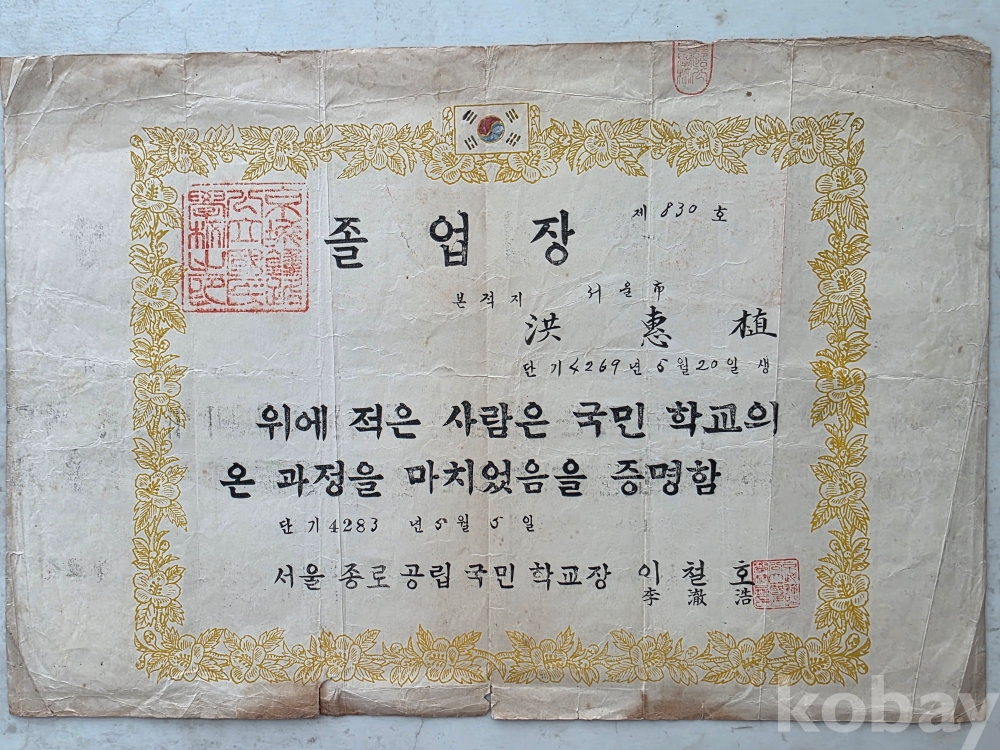 졸업장
제 830 호
본적지 서울市
洪惠植
단기 4269년 5월 20일 생
위에 적은 사람은 국민 학교의
온 과정을 마치었음을 증명함
단기 4283 년 5월 5일
서울 종로 공립 국민 학교장 이철호
李澈浩
kobay